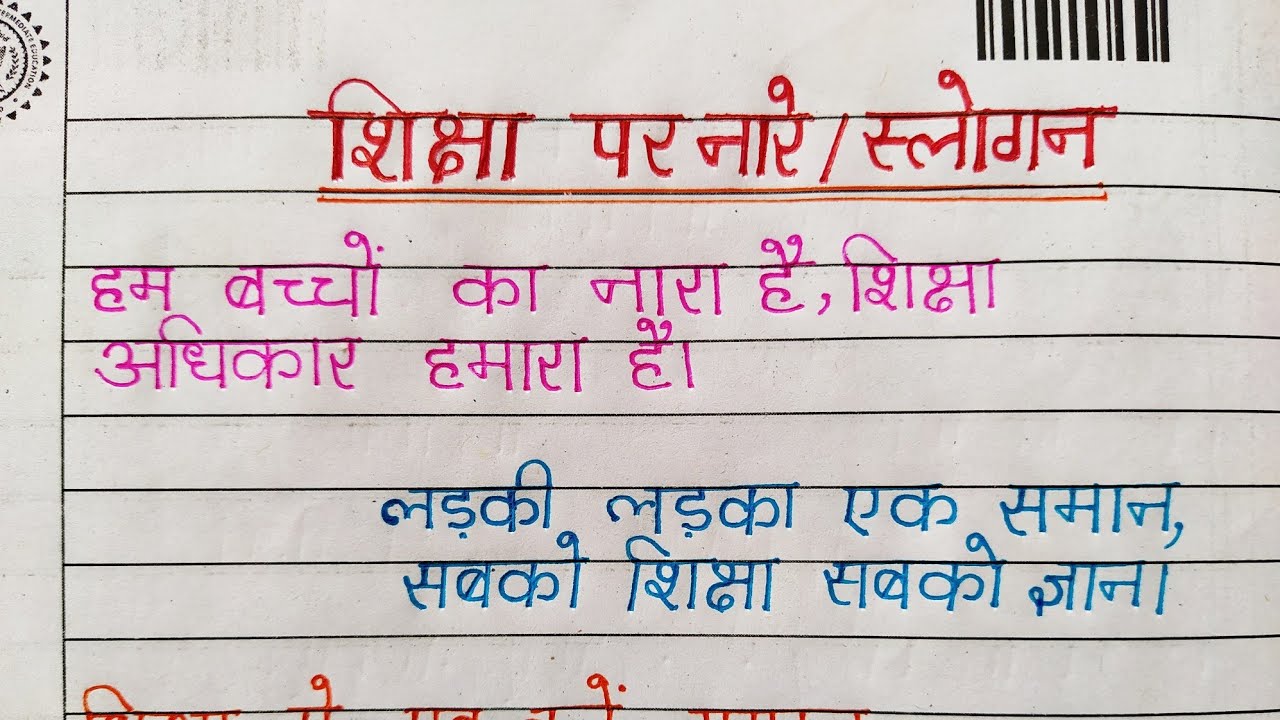 शिक्षा पर नारे/स्लोगन
हम बच्चों का नारा है, शिक्षा
अधिकार हमारा है।
लड़की लड़का एक समान,
सबको शिक्षा सबको ज्ञान।